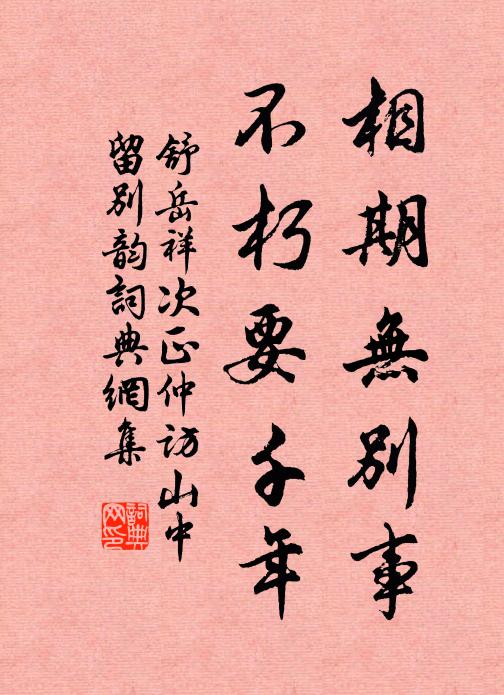 相期無別事
不朽要千年
舒岳祥次正仲访山中
留别韵詞典網集
詞典
网印